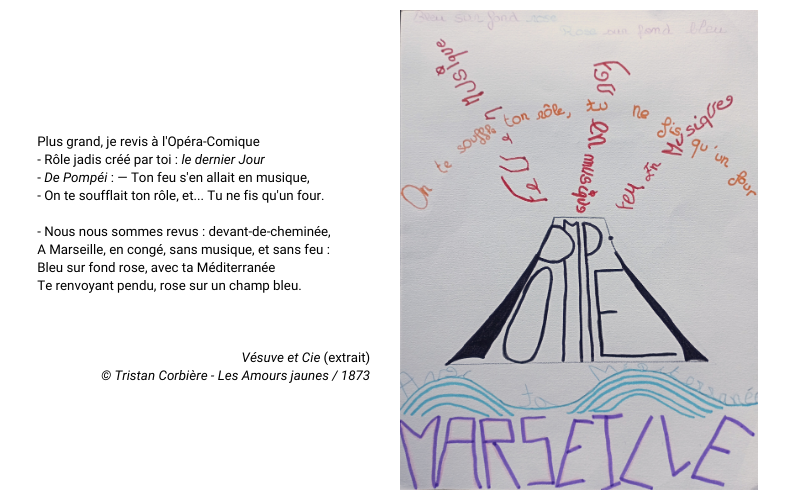 Plus grand, je revis à l'Opéra-Comique
- Rôle jadis créé par toi : le dernier Jour
- De Pompéi : — Ton feu s'en allait en musique,
- On te soufflait ton rôle, et... Tu ne fis qu'un four.
- Nous nous sommes revus : devant-de-cheminée,
A Marseille, en congé, sans musique, et sans feu :
Bleu sur fond rose, avec ta Méditerranée
Te renvoyant pendu, rose sur un champ bleu.
Vésuve et Cie (extrait)
© Tristan Corbière - Les Amours jaunes / 1873
Bleu sur fond rose
Rose sur fond bleu
On te souffla ton rôle, et ne fis qu'un four
Musique
feu en musique
feu en Musique
POMPEI
Avec ta Méditerranée
MARSEILLE